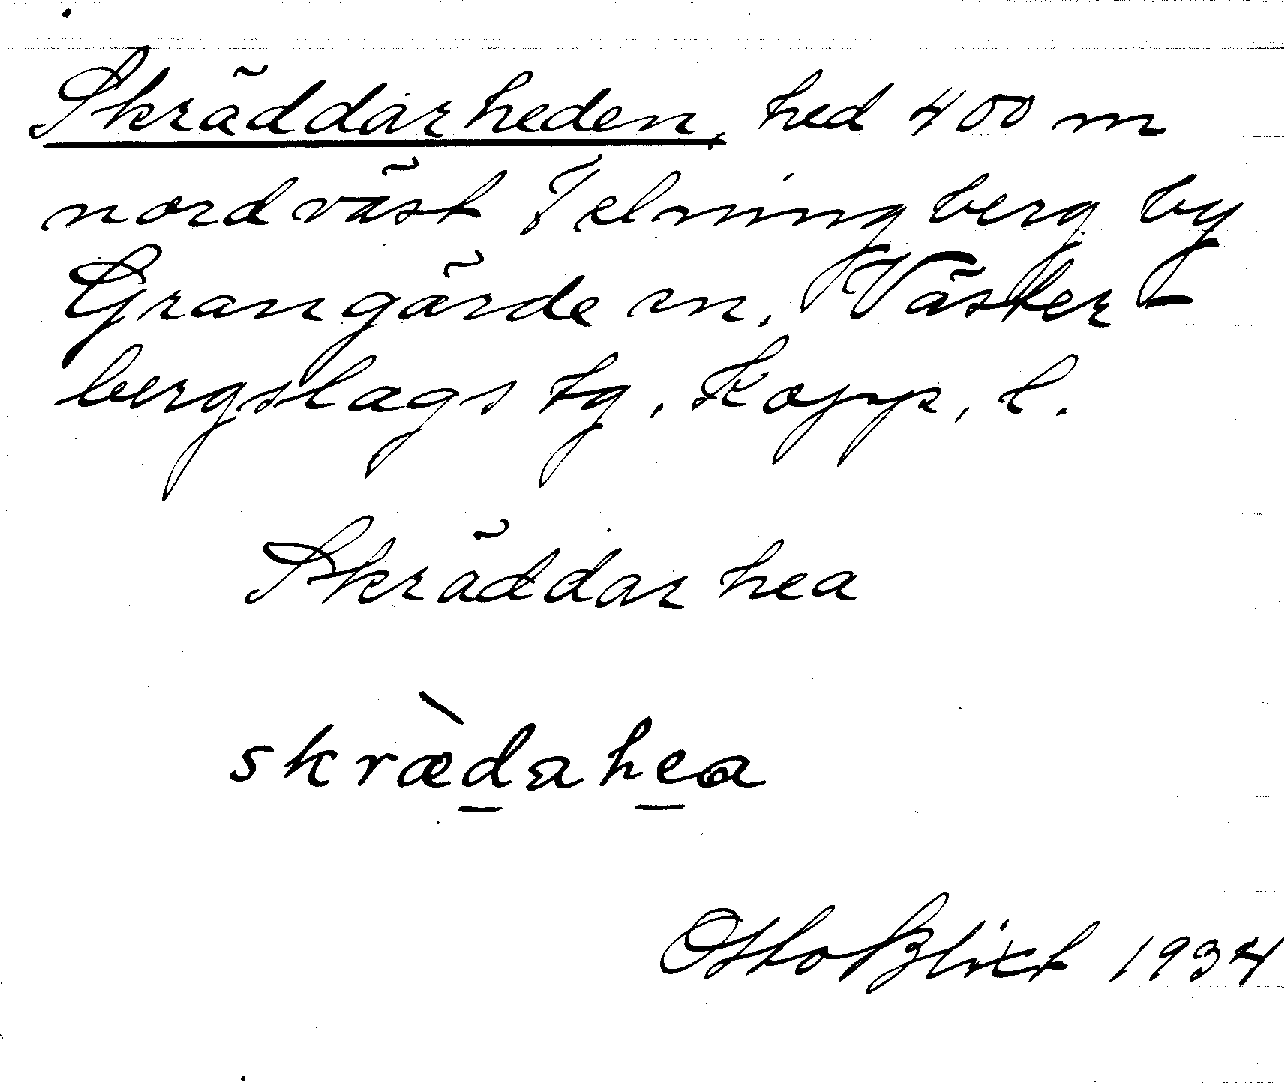 Skräddarheden, hed 400 m
nordväst Telningberg by
Grangärde sn, Väster-
bergslags tg, Kopp. l.
Skräddar hea
skræ̀dahea
Otto Blixt 1934